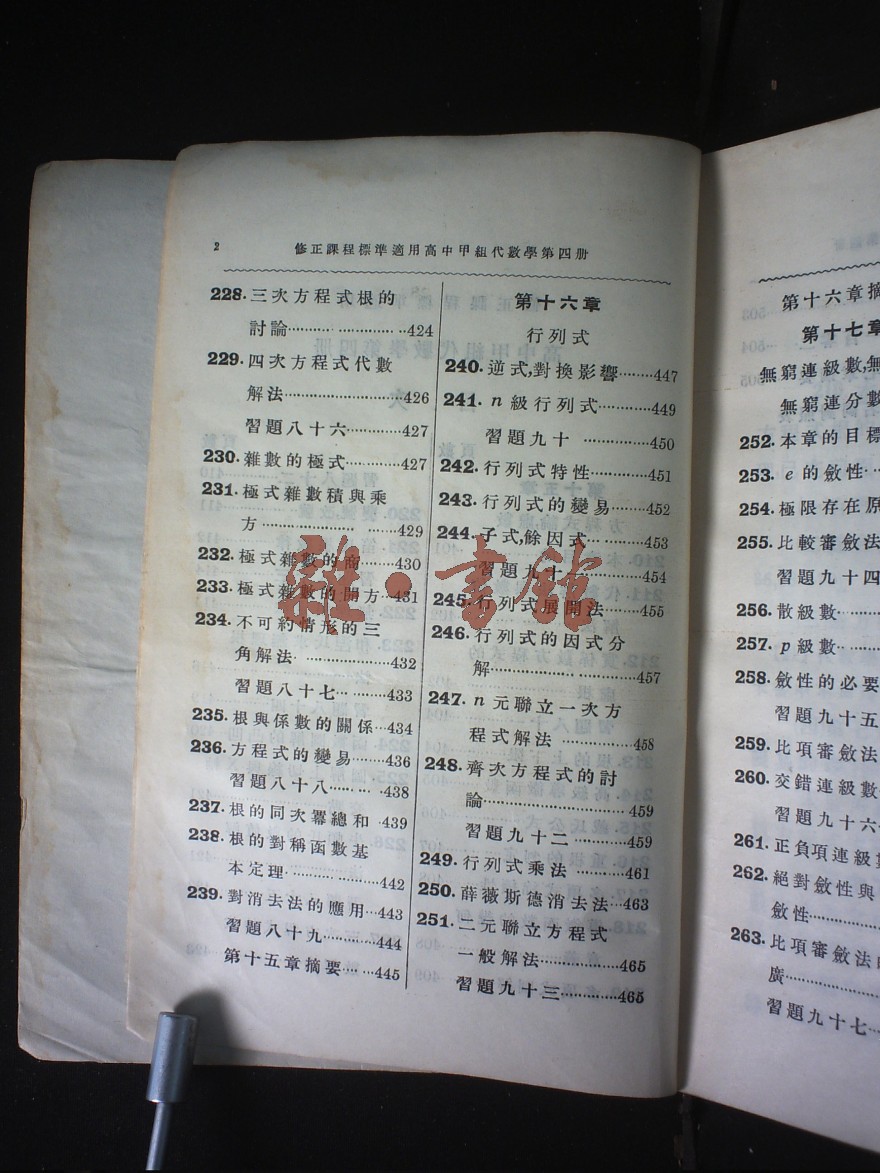 2
修正課程標準適用高中甲組代數學第四册
228. 三次方程式根的
討論……………424
229. 四次方程式代數
解法……………426
習題八十六………427
230. 雜數的極式……427
231. 極式雜數積與乘
方……………429
232. 極式雜數的商……430
233. 極式雜數的開方…431
234. 不可約情形的三
角解法……………432
習題八十七………433
235. 根與係數的關係…434
236. 方程式的變易……436
習題八十八………438
237. 根的同次羃總和…439
238. 根的對稱函數基
本定理……………442
239. 對消去法的應用…443
習題八十九………444
第十五章摘要……445
第十六章
行列式
240. 逆式,對換影響……447
241. n 級行列式………449
習題九十…………450
242. 行列式特性………451
243. 行列式的變易……452
244. 子式,餘因式……453
習題九十一………454
245. 行列式展開法……455
246. 行列式的因式分
解……………457
247. n 元聯立一次方
程式解法…………458
248. 齊次方程式的討
論……………459
習題九十二………459
249. 行列式乘法………461
250. 薛薇斯德消去法…463
251. 二元聯立方程式
一般解法…………465
習題九十三………465
第十六章摘
第十七章
無窮連級數,無
無窮連分數
252. 本章的目標
253. e 的斂性…
254. 極限存在原
255. 比較審斂法
習題九十四
256. 散級數…
257. p 級數…
258. 斂性的必要
習題九十五
259. 比項審斂法
260. 交錯連級數
習題九十六
261. 正負項連級數
262. 絕對斂性與
斂性…………
263. 比項審斂法
廣…………
習題九十七…
雜·書館